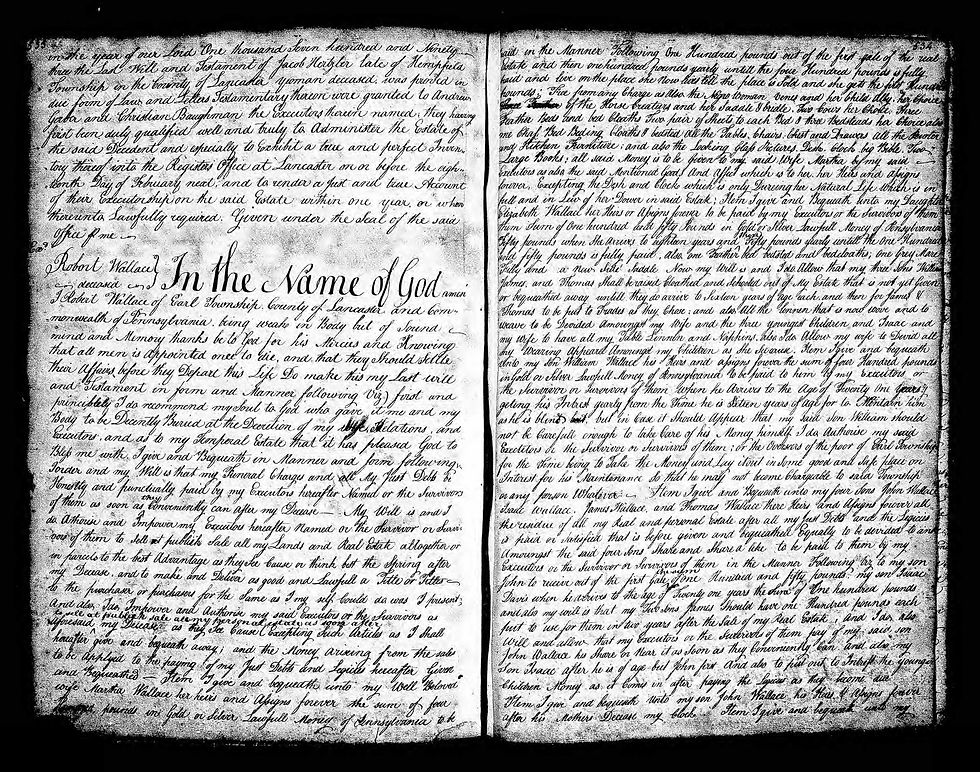 533
in the year of our Lord One thousand Seven hundred and Ninety
three the Last Will and Testament of Jacob Hertzler late of Hempfield
Township in the County of Lancaster yeoman deceased, was proved in
due form of Law and Letters Testamentary thereon were granted to Andrew
Gaba and Christian Baughman the Executors therein named, they having
first been duly qualified well and truly to Administer the Estate of
the said Decedent and especially to Exhibit a true and perfect Inven-
tory thereof into the Registers Office at Lancaster on or before the eigh-
teenth Day of February next, and to render a just and true Account
of their Executorship on the said Estate within one year, or when
thereunto Lawfully required. Given under the Seal of the said
Office pr me
Robert Wallace
deceased
In the Name of God amen
I Robert Wallace of Earl Township County of Lancaster and Com-
monwealth of Pennsylvania, being weak in Body but of Sound
mind and Memory thanks be to God for his Mercies and Knowing
that all men is Appointed once to die, and that they Should Settle
their Affairs before they Depart this Life Do make this my Last will
and Testament in form and Manner following Viz) first and
principlely I do recommend my Soul to God who gave it me and my
Body to be Decently Buried at the Descretion of my Relations, and
Executors, and as to my Temporal Estate that it has pleased God to
Bless me with, I give and Bequeath in Manner and form following,
I order and my Will is that my Funeral Charges and all My Just Debts be
Honestly and punctually paid by my Executors hereafter Named or the Survivors
of them as soon as they Conveniently can after my Decease My Will is and I
do Athorise and Impower my Executors hereafter Named or the Survivor or Survi-
vors of them to Sell at publick Sale all my Lands and Real Estate altogether or
in parcels to the best Advantage as they See Cause or think but the Spring after
my Decease, and to make and Deliver as good and Lawfull a Title or Titles
to the purchaser or purchasers for the Same as I my Self Could do was I present;
And also, I do Impower and Authorise my said Executors or the Survivors as
to sell at publick sale all my personal estate as soon after
aforesaid my Decease as they See Cause (Excepting Such Articles as I shall
hereafter give and bequeath away; and the Money Arising from the sales
to be Applyed to the paying of my Just Debts and Legices hereafter Given
and Bequeathed Item I give and bequeath unto my Well Beloved
wife Martha Wallace her heirs and Assigns forever the sum of four
pounds in Gold or Silver Lawfull Money of Pennsylvania to be
534
paid in the Manner Following One Hundred pounds out of the first Sale of the real
Estate and then one hundred pounds yearly untill the four Hundred pounds is fully
paid and live on the place she now lives till the place is Sold and she gets the first Hundred
pounds; Free from any Charge as also the Negro woman Venes and her Child Ally her Choice
of the Horse Creatures and her Saddle & bridle, Two Cows her Choice Three
Feather Beds and bed Cloaths Two pair of Sheets to each Bed & three Bedsteads her Choice also
one Chaf Bed Beding Cloaths & bedsted all the Tables, Chairs, Chest and Drawers all the
and Kitchen Furniture: and also the Looking Glass Pictures, Desk Clock big Bible Two
Large Books; all said Money is to be given to my said Wife Martha by my said
Exeutors as also the said Mentioned Goods And Affects which is to her her Heirs and Assigns
forever, Excepting the Desk and Clock which is only Dureing her Natural Life which is in
full and in Lieu of her Dower in said Estate; Item I give and Bequeath unto my Daughter
Elizabeth Wallace her Heirs or Assigns forever to be paid by my Executors or the Survivors of them
the Sum of One hundred and fifty Pounds in Gold or Silver Lawfull Money of Pennsylvania
Fifty pounds when she arives to eighteen years and then Fifty pounds yearly untill the One Hundred
and fifty pounds is fully paid, also One Feather Bed bedsted and bedcloaths, one Grey Mare
Filly and a new Side Saddle Now my Will is and I do Allow that my three Sons William
James, and Thomas Shall be raised Cloathed and Schooled out of My Estate that is not yet Given
or bequeathed away untill they do arrive to Sixteen years of age Each and then for James &
Thomas to be put to Trades as they Chose: and also All the Linnen that is now wove and to
weave to be Devided Amongst my Wife and the three youngest Children, and Isaac and
my wife to have all my Table Linnen and Napkins, also I do Allow my wife to Devid all
my Wearing Apparel Amongst my Children as She Pleases. Item I give and bequeath
unto my Son William Wallace his Heirs and assigns forever One Hundred Pounds
in Gold or Silver Lawfull Money of Pennsylvania to be paid to him by my Executors or
the Survivor or Survivors of them, when he Arrives to the Age of Twenty One years;
geting his Intrest yearly from the time he is Sixteen years of age for to
as he is , but in Case it Should Appear that my said Son William should
not be Carefull enough to take Care of his Money himself I do Authorise my said
Executors or the Survivor or Survivors of them; or the Overseers of the poor of Earl Township
for the time being to Take the Money and Lay it out in Some good and Safe place on
Interest for his Maintenance so that he may not become Chargeable to said Township
or any person Whatever. Item I give and Bequeath unto my four Sons John Wallace
Isaac Wallace, James Wallace, and Thomas Wallace there Heirs and Assigns forever all
the residue of all my Real and personal Estate after all my Just Debts and the Legices
is paid or Satisfied that is before given and bequeathed Equally to be devided to and
Amoungst the said four Sons Share and Share a like to be paid to them by my
Executors or the Survivor or Survivors of them in the Manner Following Viz to my Son
John to receive out of the first Sale of One Hundred and fifty pounds: my son Isaac
Davis when he arrives to the age of Twenty one years the Sum of One hundred pounds
and also my will is that my Two Sons James Should have one Hundred Pounds each
put to use for them in two years after the Sale of my Real Estate; And I do also
Will and allow that my Executors or the Survivors of them pay of my said, son
John Wallace his Share or Near it as Soon as they Conveniently Can and also my
Son Isaac after he is of age but John first And also to put out to Intrest the younger
Children Money as it Coms in after paying the Legices as they become due
Item I give and bequeath unto my Son John Wallace his Heirs & Assigns forever
after his Mothers Decease my Clock Item I give and bequeath unto my